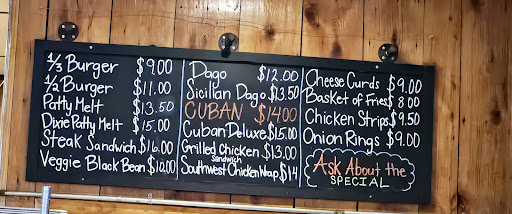 1/3 Burger $9.00
1/2 Burger $11.00
Patty Melt $13.50
Dixie Patty Melt $15.00
Steak Sandwich $16.00
Veggie Black Bean $10.00
Dago $12.00
Sicilian Dago $13.50
CUBAN $1400
Cuban Deluxe $15.00
Grilled Chicken $13.00
Sandwich
Southwest Chicken Wrap $14
Cheese Curds $9.00
Basket of Fries $8.00
Chicken Strips $9.50
Onion Rings $9.00
Ask About the
SPECIAL